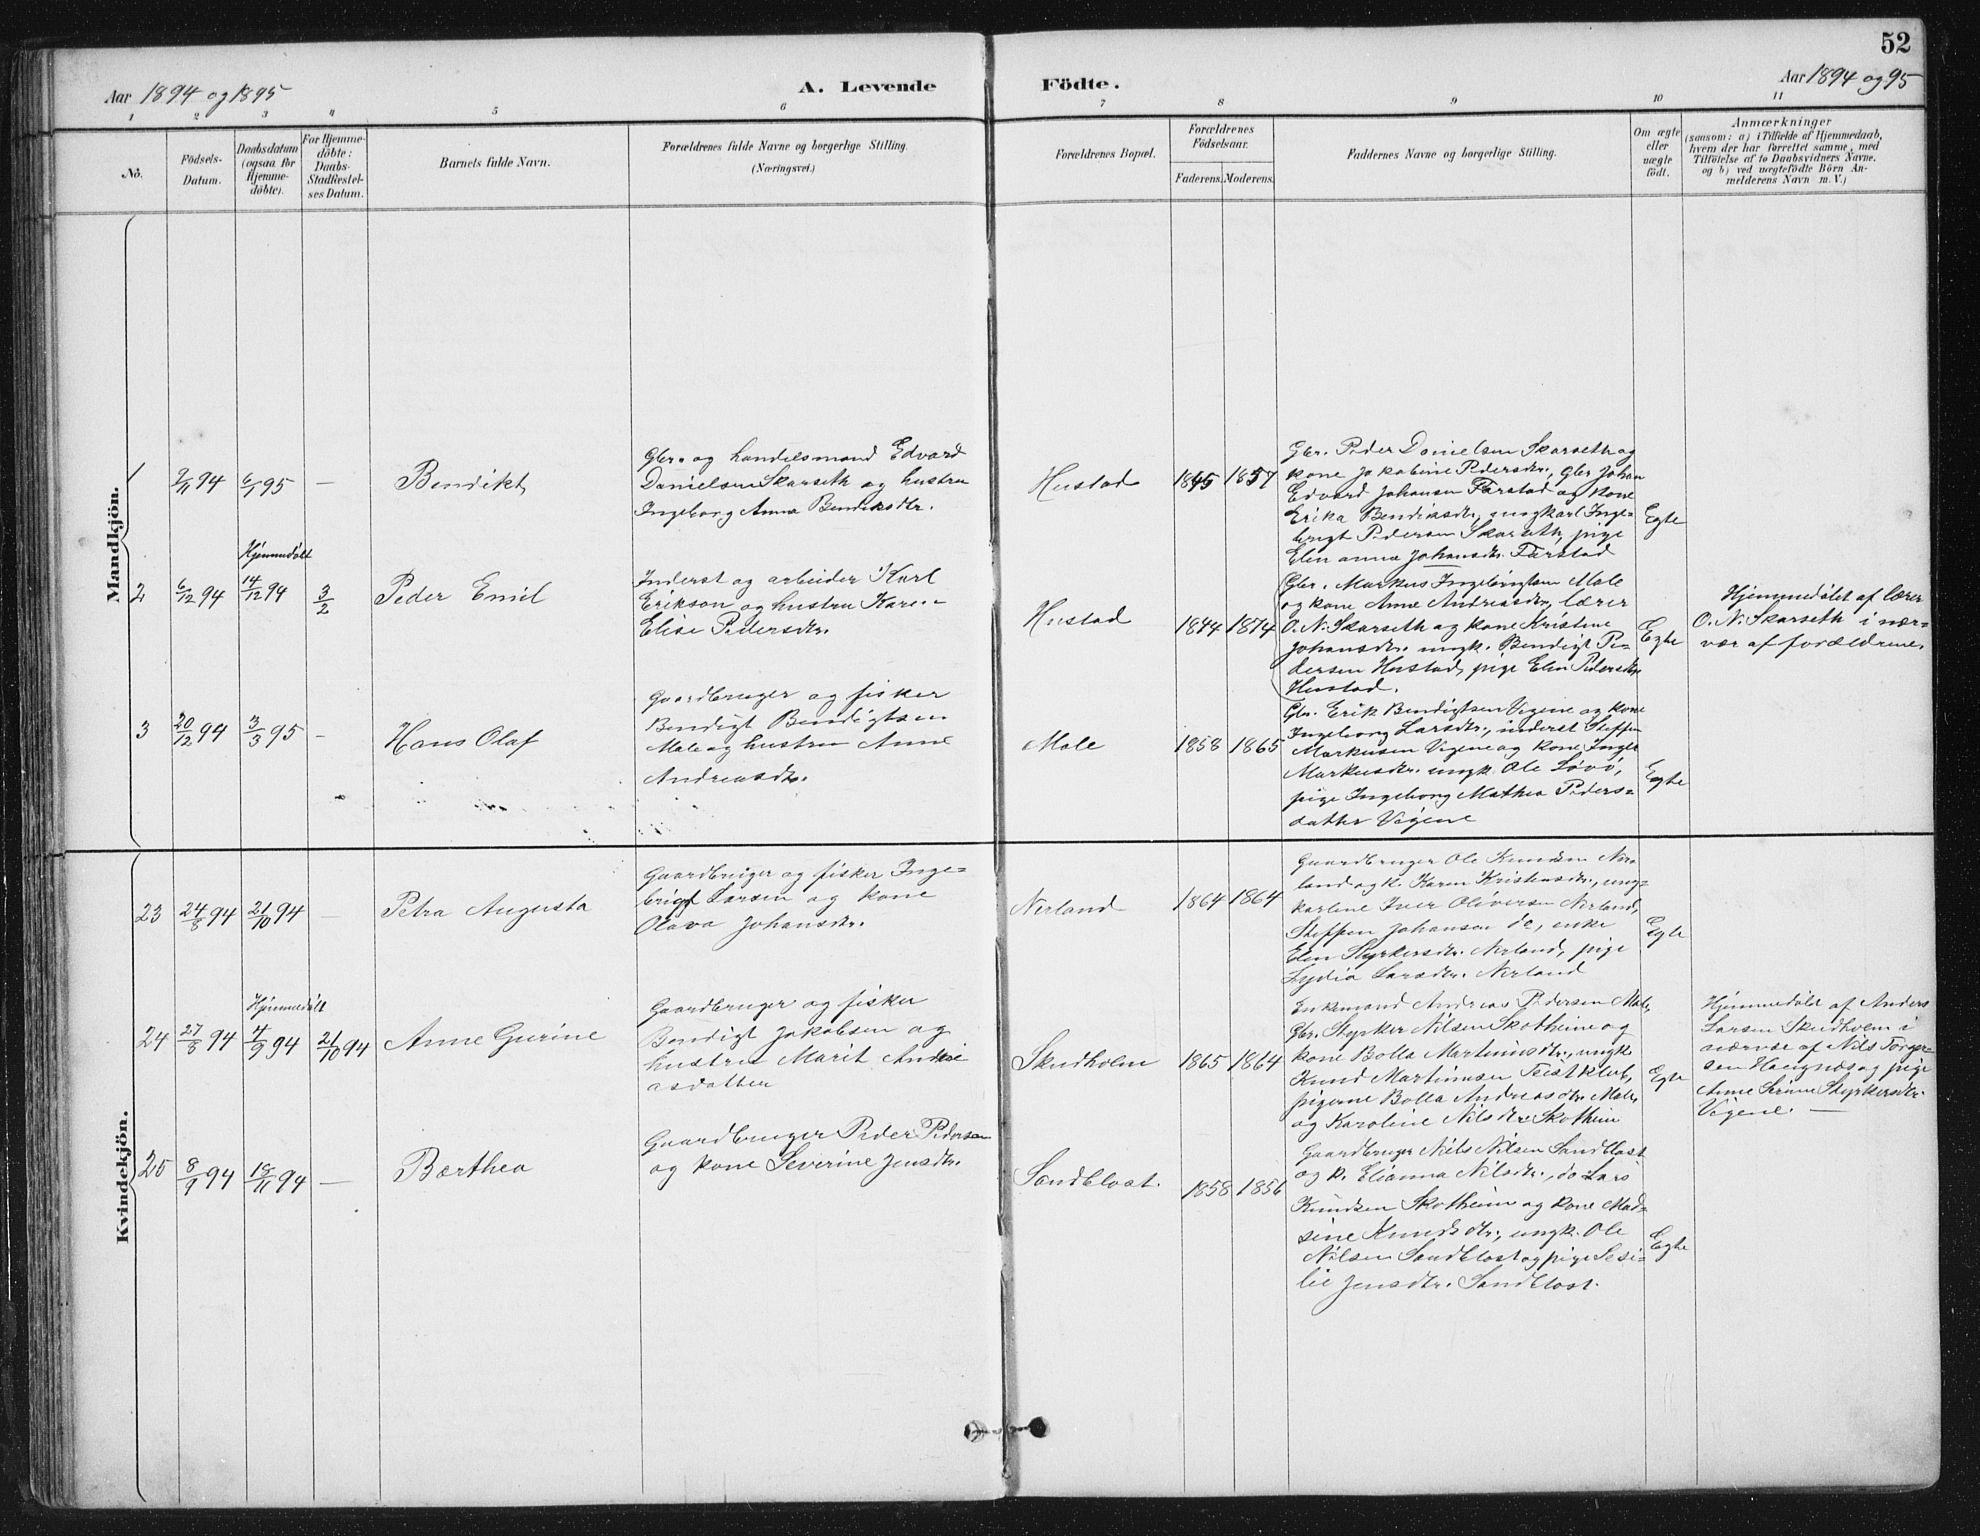 52
Aar 1894 og 1895
A. Levende
Födte.
Aar 1894 og 95
1 2 3 4 5 6 7 8 9 10 11
No.
Födsels-
Datum.
Daabsdatum
(ogsaa for
Hjemme-
döbte).
For Hjemme-
döbte:
Daabs-
Stadfestel-
ses Datum.
Barnets fulde Navn.
Forældrenes fulde Navne og borgerlige Stilling.
(Næringsvei.)
Forældrenes Bopæl.
Forældrenes
Födselsaar.
Faderens. Moderens.
Faddernes Navne og borgerlige Stilling.
Om ægte
eller
uægte
födt.
Anmærkninger
(saasom: a) i Tilfælde af Hjemmedaab,
hvem der har forrettet samme, med
Tilföielse af to Daabsvidners Navne,
og b) ved uægtefödte Börn An-
melderens Navn m. V.)
Mandkjön.
1
94
6/1 95
—
Bendikt
Gbr. og handelsmand Edvard
Danielsen Skarseth og hustru
Ingeborg Anna Bendiksdtr.
Hustad
1845 1857
Gbr. Peder Danielsen Skarseth og
kone Jakobine Pedersdtr., Gbr Johan
Edvard Johansen Farstad og kone
Erika Bendiksdtr, ungkarl Inge-
brigt Pedersen Skarseth, pige
Elen Anna Johansdtr. Farstad
Egte
2
6/12 94
Hjemmedöbt
14/12 94
3/2
Peder Emil
Inderst og arbeider Karl
Erikson og hustru Karen
Elise Pedersdtr.
Hustad
1844 1874
Gbr. Markus Ingebrigtsen Male
og kone Anne Andreasdtr, lærer
O. N. Skarseth og kone Kristine
Johansdtr. ungk. Bendigt Pe-
dersen Hustad, pige Elen Pedersdtr
Hustad.
Egte
Hjemmedöbt af lærer
O. N. Skarseth i nær-
vær af forældrene.
3
20/12 94
3/3 95
—
Hans Olaf
Gaardbruger og fisker
Bendigt Bendigtsen
Male og hustru Anne
Andreasdtr.
Male
1858 1865
Gbr. Erik Bendigtsen Vigene og kone
Ingeborg Larsdtr., inderst Steffen
Markusen Vigene og kone Inger
Markusdtr. ungk. Ole Lovö,
pige Ingeborg Mathea Peders-
datter Vigene
Egte
Kvindekjön.
23
24/8 94
21/10 94
—
Petra Augusta
Gaardbruger og fisker Inge-
brigt Larsen og kone
Olava Johansdtr.
Nerland
1864 1864
Gaardbruger Ole Knudsen Ner-
land og k. Karen Kristensdtr., ung-
karlene Iver Oliversen Nerland,
Steffen Johansen do, enke
Elen Styrkersdtr. Nerland, pige
Lydia Larsdtr. Nerland
Egte
24
27/8 94
Hjemmedöbt
4/9 94
21/10 94
Anne Gurine
Gaardbruger og fisker
Bendigt Jakobsen og
hustru Marit Andre
asdatter
Skudholm
1865 1864
Enkemand Andreas Pedersen Male,
Gbr. Styrker Nilsen Skotheim og
kone Bolla Martinusdtr., ungk.
Knud Martinusen,
pigerne Bolla Andreasdtr. Male,
og Karoline Nilsdtr. Skotheim
Egte
Hjemmedöbt af Anders
Larsen Skudholm i
nærvær af Nils Torger-
sen og pige
Anne Serine Styrkersdtr.
Vigene. —
25
8/9 94
18/11 94
—
Bærthea
Gaardbruger Peder Pedersen
og kone Severine Jensdtr.
Sandblaast.
1858 1856
Gaardbruger Niels Nilsen Sandblaast
og k. Elianna Nilsdtr., do Lars
Knudsen Skotheim og kone Mad-
sine Knudsdtr., ungk. Ole
Nilsen Sandblaast og pige Sesi-
lie Jensdtr. Sandblaast.
Egte